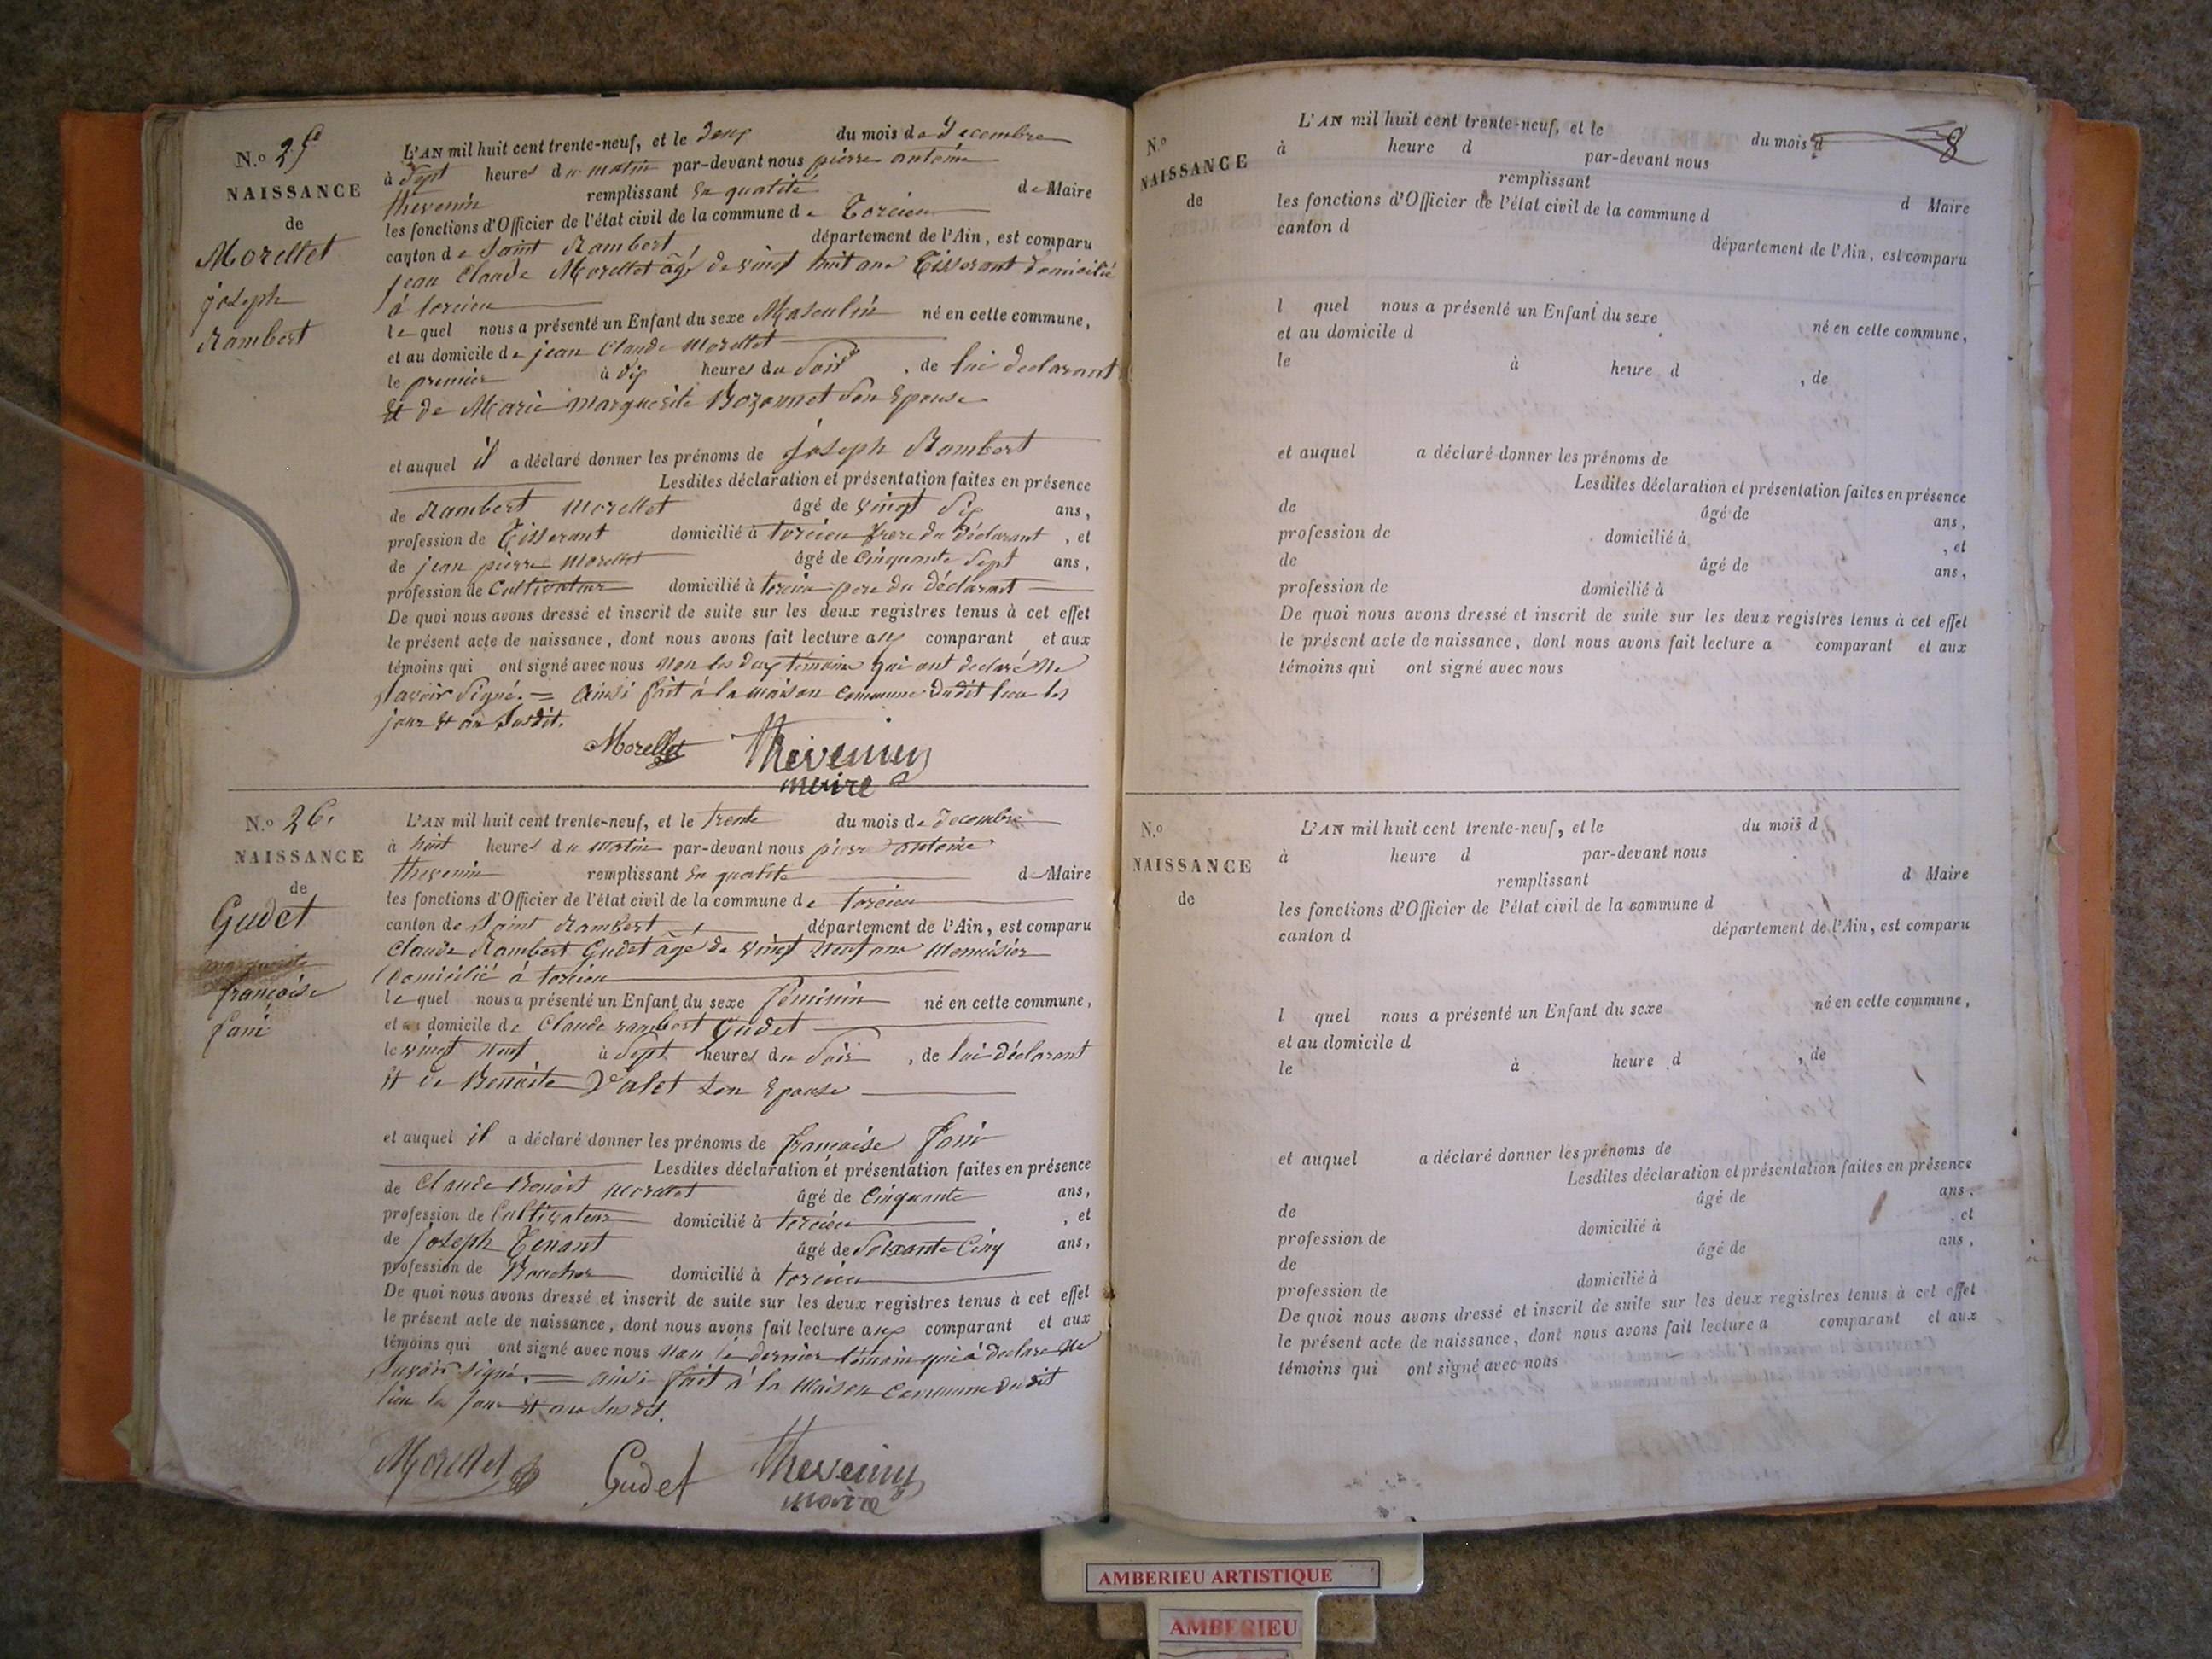 N.º 25
NAISSANCE
de
Morellet
joseph
Rambert
L'AN mil huit cent trente-neuf, et le deux du mois de decembre
à Sept heures du matin par-devant nous pierre antoine
thevenin remplissant En qualité de Maire
les fonctions d'Officier de l'état civil de la commune de Torcieu
canton de Saint Rambert département de l'Ain, est comparu
jean Claude Morellet âgé de vingt huit ans Tisserant domicilié
à torcieu
lequel nous a présenté un Enfant du sexe Masculin né en cette commune,
et au domicile de jean Claude Morellet
le premier à dix heures du Soir, de lui declarant
Et de Marie Marguerite Bozonnet Son Epouse
et auquel il a déclaré donner les prénoms de joseph Rambert
Lesdites déclaration et présentation faites en présence
de Rambert Morellet âgé de vingt Six ans,
profession de Tisserant domicilié à torcieu frere du déclarant, et
de jean pierre Morellet âgé de Cinquante Sept ans,
profession de Cultivateur domicilié à torcieu pere du déclarant
De quoi nous avons dressé et inscrit de suite sur les deux registres tenus à cet effet
le présent acte de naissance, dont nous avons fait lecture aux comparant et aux
témoins qui ont signé avec nous non les deux témoins qui ont declaré Ne
Savoir Signé. = Ainsi fait à la maison Commune dudit lieu les
jour Et an Susdit.
Morellet thevenin
maire
N.º 26.
NAISSANCE
de
Gudet
marguerite
françoise
fani
L'AN mil huit cent trente-neuf, et le trente du mois de decembre
à huit heures du matin par-devant nous pierre antoine
thevenin remplissant En qualité de Maire
les fonctions d'Officier de l'état civil de la commune de torcieu
canton de Saint Rambert département de l'Ain, est comparu
Claude Rambert Gudet âgé de vingt Neuf ans Menuisier
domicilié à torcieu
lequel nous a présenté un Enfant du sexe féminin né en cette commune,
et au domicile de Claude rambert Gudet
le vingt Neuf à Sept heures du Soir, de lui déclarant
Et de Benoite Valet Son Epouse
et auquel il a déclaré donner les prénoms de françoise fani
Lesdites déclaration et présentation faites en présence
de Claude Benoit Morellet âgé de Cinquante ans,
profession de Cultivateur domicilié à torcieu, et
de joseph Tenant âgé de Soixante Cinq ans,
profession de Boucher domicilié à torcieu
De quoi nous avons dressé et inscrit de suite sur les deux registres tenus à cet effet
le présent acte de naissance, dont nous avons fait lecture aux comparant et aux
témoins qui ont signé avec nous Non le dernier témoin qui à declare Ne
Savoir signé. = ainsi fait à la Maison Commune dudit
lieu les Jour Et an Susdit.
Morellet Gudet thevenin
maire
8
N.º
NAISSANCE
de
L'AN mil huit cent trente-neuf, et le du mois d
à heure d par-devant nous
remplissant d Maire
les fonctions d'Officier de l'état civil de la commune d
canton d département de l'Ain, est comparu
l quel nous a présenté un Enfant du sexe né en cette commune,
et au domicile d
le à heure d , de
et auquel a déclaré donner les prénoms de
Lesdites déclaration et présentation faites en présence
de âgé de ans,
profession de domicilié à , et
de âgé de ans,
profession de domicilié à
De quoi nous avons dressé et inscrit de suite sur les deux registres tenus à cet effet
le présent acte de naissance, dont nous avons fait lecture a comparant et aux
témoins qui ont signé avec nous
N.º
NAISSANCE
de
L'AN mil huit cent trente-neuf, et le du mois d
à heure d par-devant nous
remplissant d Maire
les fonctions d'Officier de l'état civil de la commune d
canton d département de l'Ain, est comparu
l quel nous a présenté un Enfant du sexe né en cette commune,
et au domicile d
le à heure d , de
et auquel a déclaré donner les prénoms de
Lesdites déclaration et présentation faites en présence
de âgé de ans,
profession de domicilié à , et
de âgé de ans,
profession de domicilié à
De quoi nous avons dressé et inscrit de suite sur les deux registres tenus à cet effet
le présent acte de naissance, dont nous avons fait lecture a comparant et aux
témoins qui ont signé avec nous
AMBERIEU ARTISTIQUE
AMBERIEU